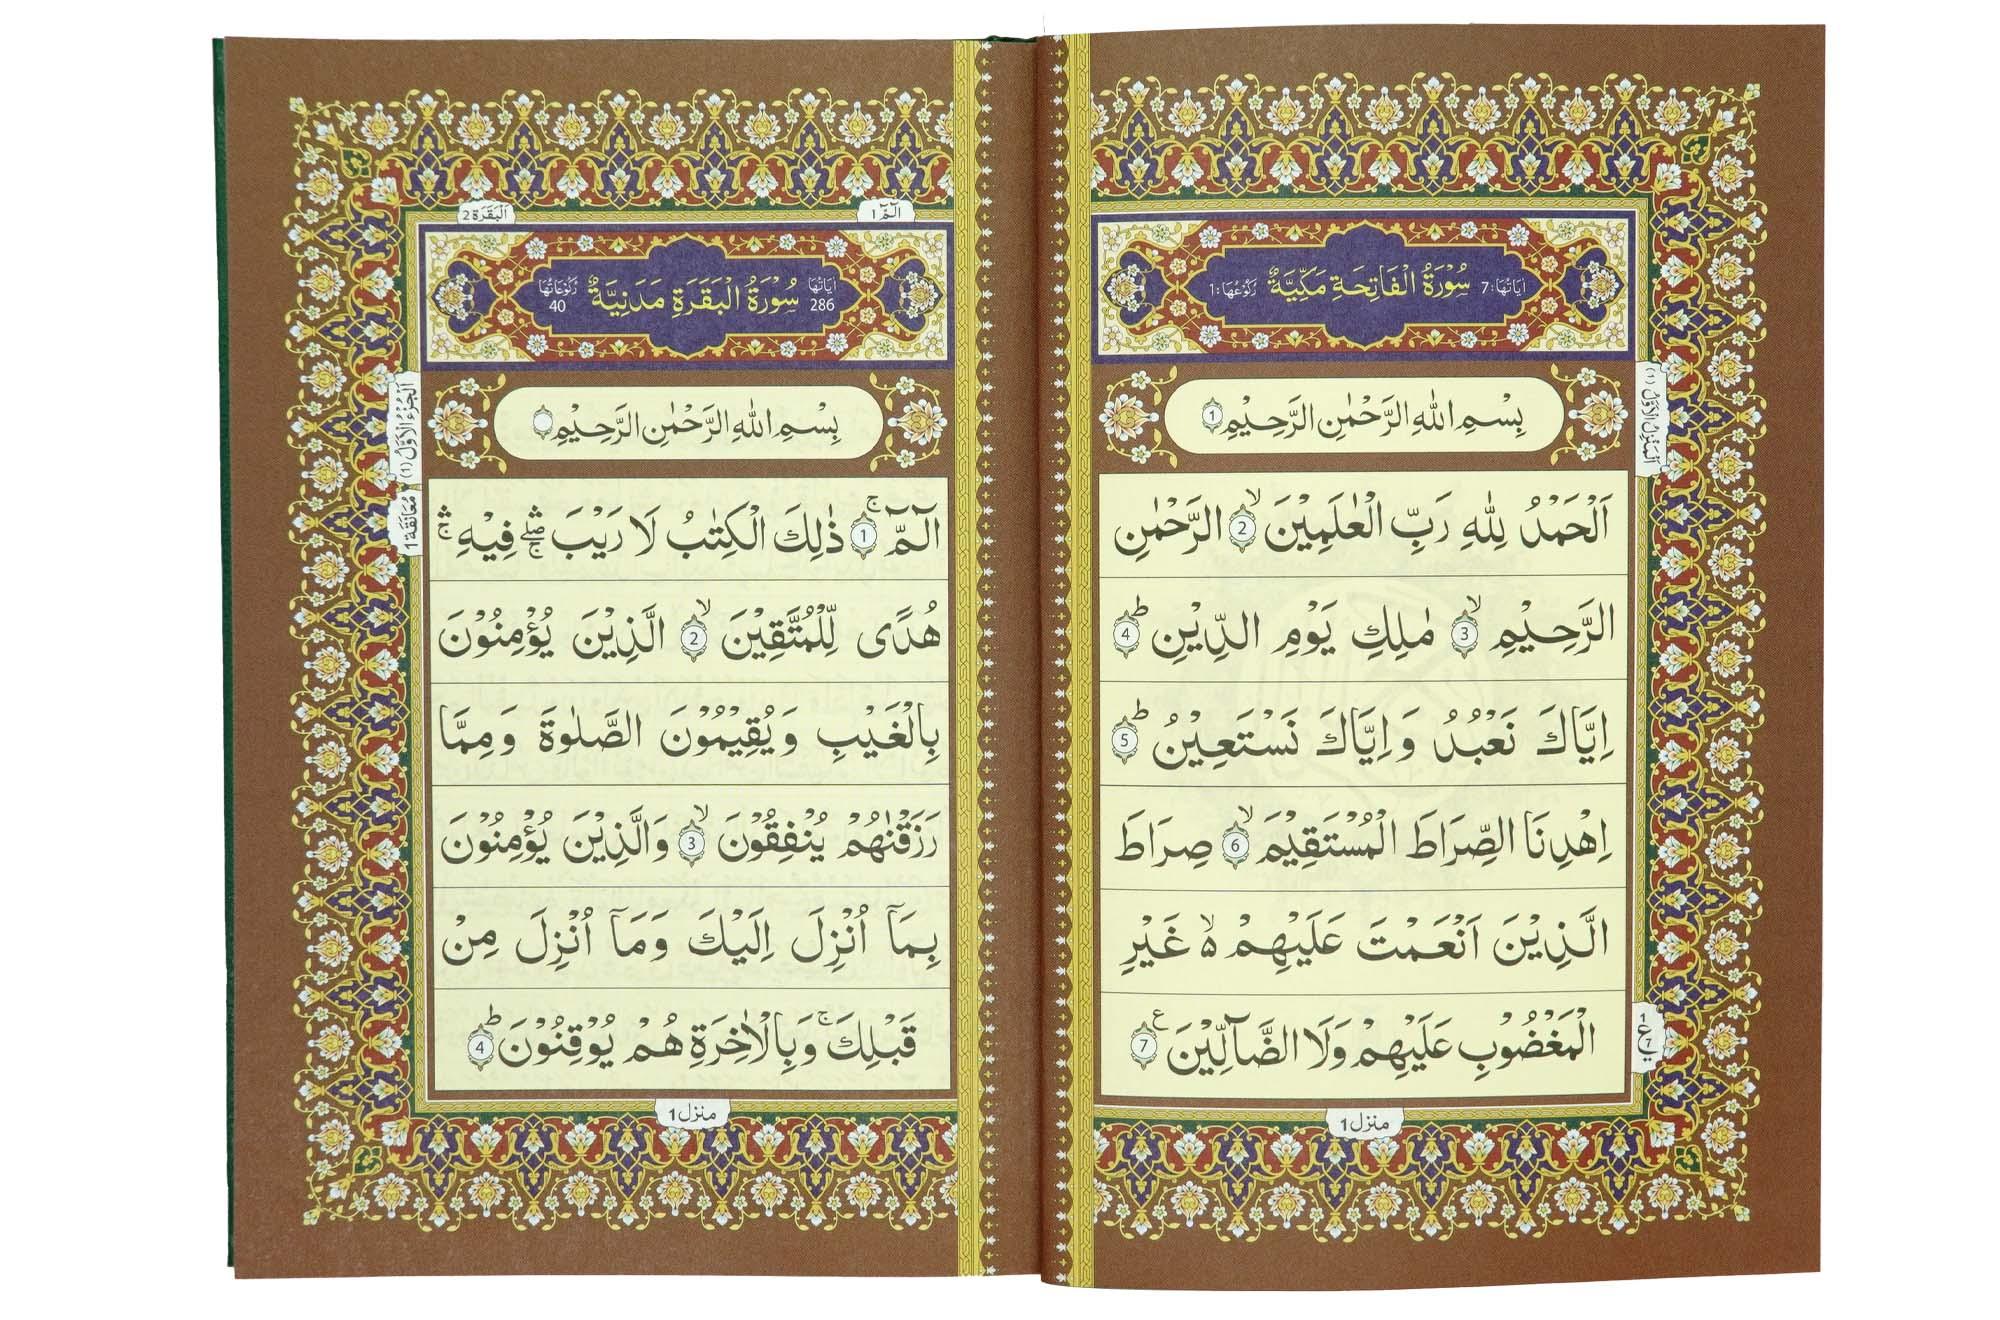 اٰيَاتُهَا: 7 سُوْرَةُ الْفَاتِحَةِ مَكِّيَّةٌ رُكُوْعُهَا: 1
بِسْمِ اللهِ الرَّحْمٰنِ الرَّحِيْمِ 1
اَلْحَمْدُ لِلّٰهِ رَبِّ الْعٰلَمِيْنَ ۙ 2 الرَّحْمٰنِ
الرَّحِيْمِ ۙ 3 مٰلِكِ يَوْمِ الدِّيْنِ ؕ 4
اِيَّاكَ نَعْبُدُ وَاِيَّاكَ نَسْتَعِيْنُ ؕ 5
اِهْدِنَا الصِّرَاطَ الْمُسْتَقِيْمَ ۙ 6 صِرَاطَ
الَّذِيْنَ اَنْعَمْتَ عَلَيْهِمْ ۙ۵ غَيْرِ
الْمَغْضُوْبِ عَلَيْهِمْ وَلَا الضَّآلِّيْنَ ع 7
اَلْمَنْزِلُ الْاَوَّلُ (1)
1 ع 7
منزل 1
الٓمّٓ 1
اَلْبَقَرَة 2
اٰيَاتُهَا 286 سُوْرَةُ الْبَقَرَةِ مَدَنِيَّةٌ رُكُوْعَاتُهَا 40
بِسْمِ اللهِ الرَّحْمٰنِ الرَّحِيْمِ
الٓمّٓ ۚ 1 ذٰلِكَ الْكِتٰبُ لَا رَيْبَ ۛۖۚ فِيْهِ ۛۚ
هُدًى لِّلْمُتَّقِيْنَ ۙ 2 الَّذِيْنَ يُؤْمِنُوْنَ
بِالْغَيْبِ وَيُقِيْمُوْنَ الصَّلٰوةَ وَمِمَّا
رَزَقْنٰهُمْ يُنْفِقُوْنَ ۙ 3 وَالَّذِيْنَ يُؤْمِنُوْنَ
بِمَآ اُنْزِلَ اِلَيْكَ وَمَآ اُنْزِلَ مِنْ
قَبْلِكَ ۚ وَبِالْاٰخِرَةِ هُمْ يُوْقِنُوْنَ ؕ 4
اَلْجُزْءُ الْاَوَّلُ (1)
مُعَانَقَة 1
منزل 1